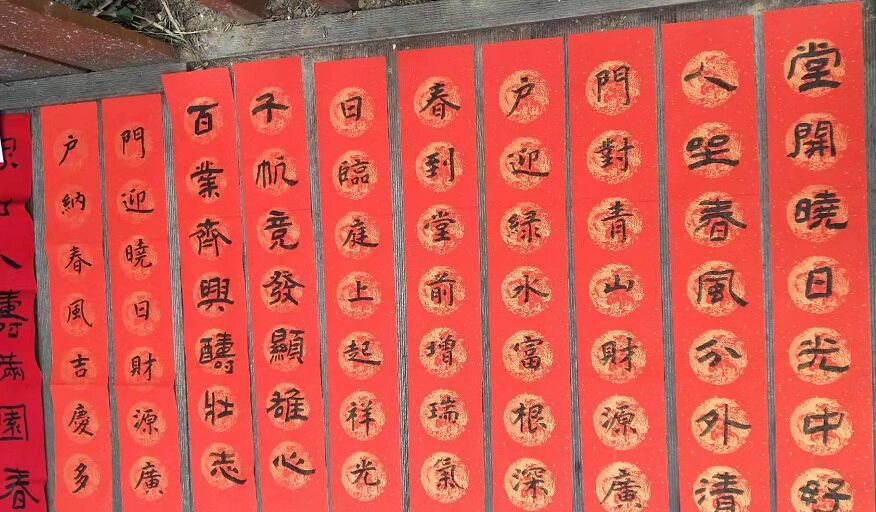 堂開曉日光中好
人坐春風分外清
門對青山財源廣
戶迎綠水富根深
春到堂前增瑞氣
日臨庭上起祥光
千帆竞發顯雄心
百業齊興醻壯志
門迎曉日財源廣
戶納春風吉慶多
人壽滿園春